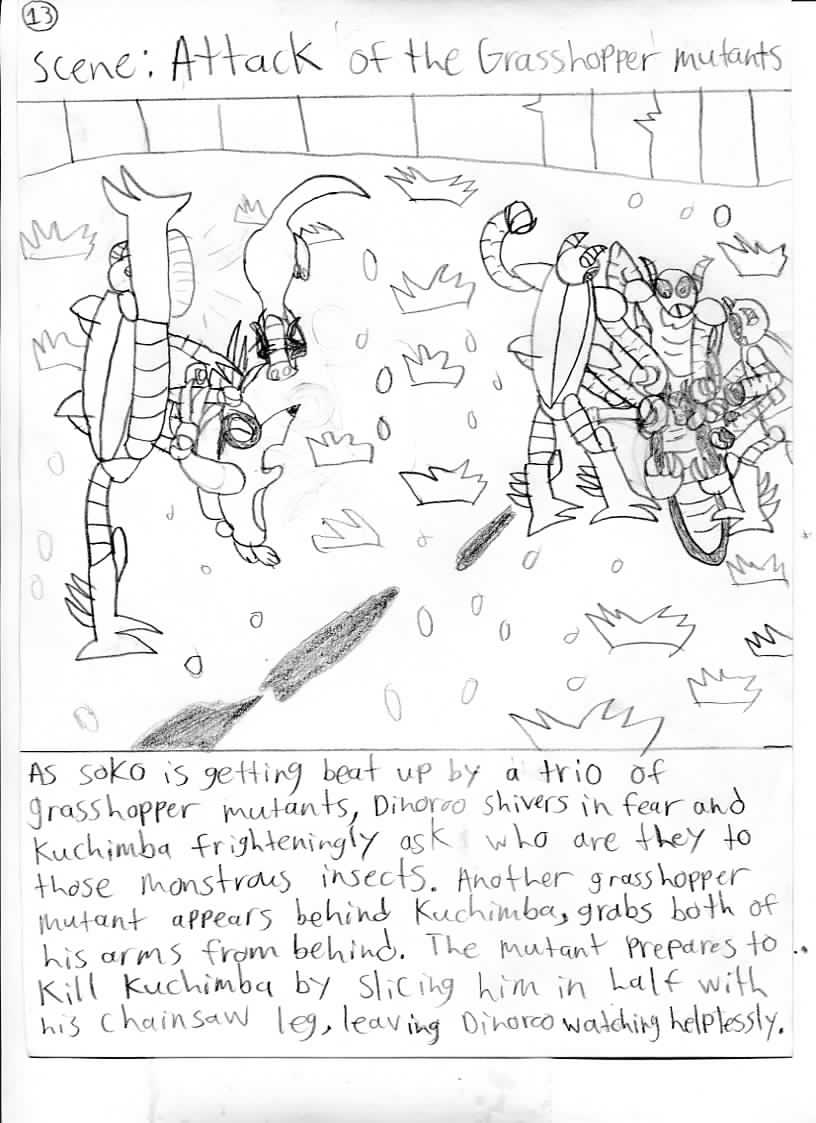 13
Scene: Attack of the Grasshopper mutants
As Soko is getting beat up by a trio of
grasshopper mutants, Dinoroo shivers in fear and
Kuchimba frighteningly ask who are they to
those monstrous insects. Another grasshopper
mutant appears behind Kuchimba, grabs both of
his arms from behind. The mutant prepares to
Kill Kuchimba by slicing him in half with
his chainsaw leg, leaving Dinoroo watching helplessly.